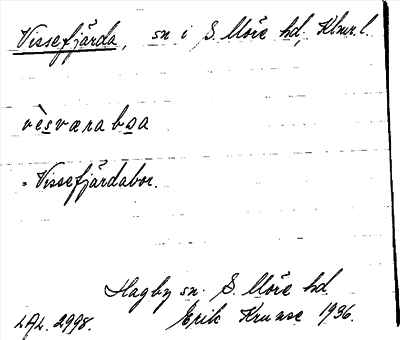 Vissefjärda, sn i S. Möre hd, Klmr. l.
vèsværaboa
= Vissefjärdabor.
Hagby sn. S. Möre hd
LAL. 2998. Erik Krumse 1936.